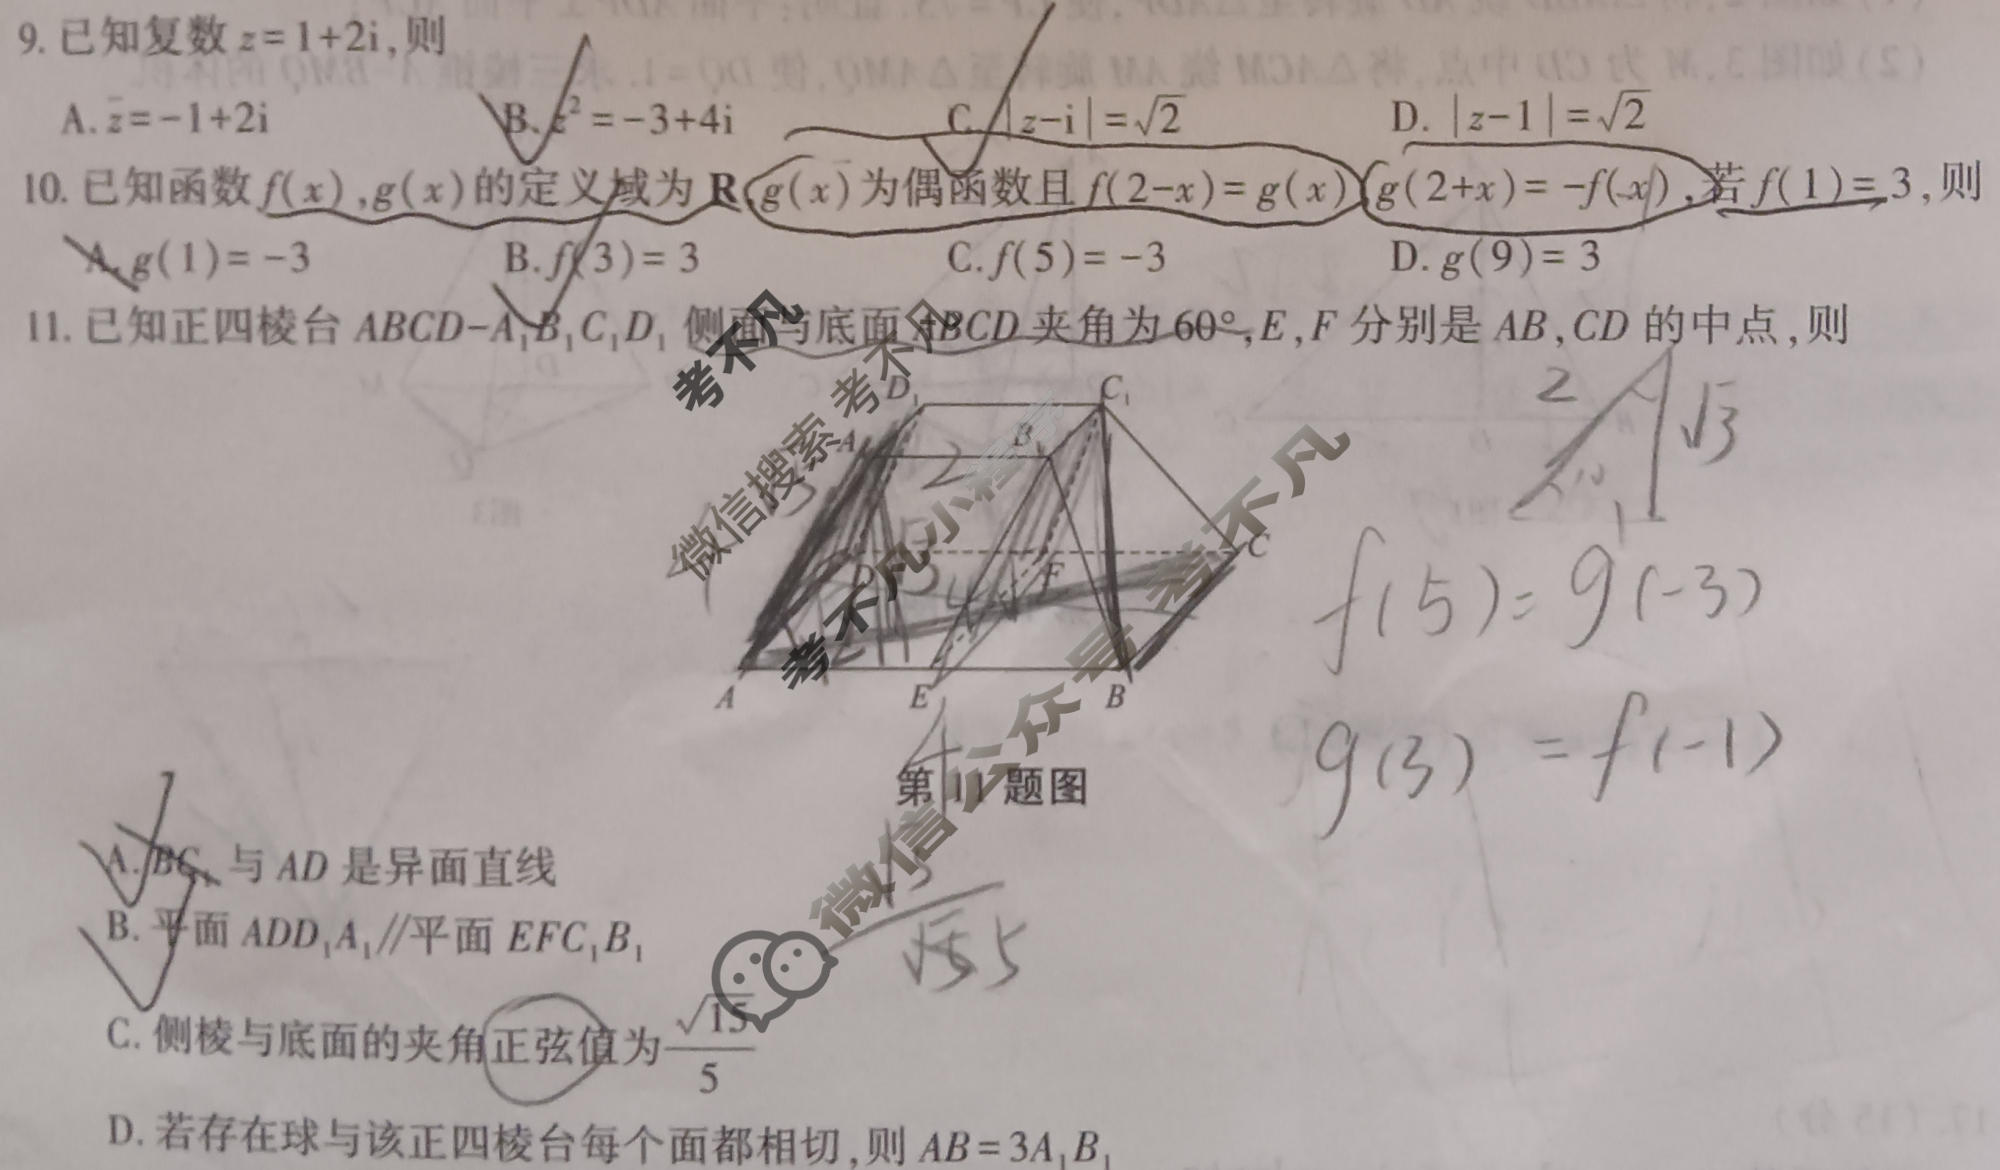 9. 已知复数 z=1+2i,则
A. z̄=-1+2i  B. z²=-3+4i  C. |z-i|=√2  D. |z-1|=√2
10. 已知函数 f(x),g(x)的定义域为 R,g(x)为偶函数且 f(2-x)=g(x),g(2+x)=-f(-x),若 f(1)=3,则
A. g(1)=-3  B. f(3)=3  C. f(5)=-3  D. g(9)=3
11. 已知正四棱台 ABCD-A₁B₁C₁D₁ 侧面与底面 ABCD 夹角为 60°,E,F 分别是 AB,CD 的中点,则
D₁ C₁
A B₁
2
2 √3
1
D F C
A E B
f(5)=g(-3)
g(3)=f(-1)
4
第 11 题图
√5 5
A. BC₁ 与 AD 是异面直线
B. 平面 ADD₁A₁//平面 EFC₁B₁
C. 侧棱与底面的夹角正弦值为 √15/5
D. 若存在球与该正四棱台每个面都相切,则 AB=3A₁B₁
考不凡
微信搜索 考不凡
考不凡小程序
微信公众号 考不凡
图3